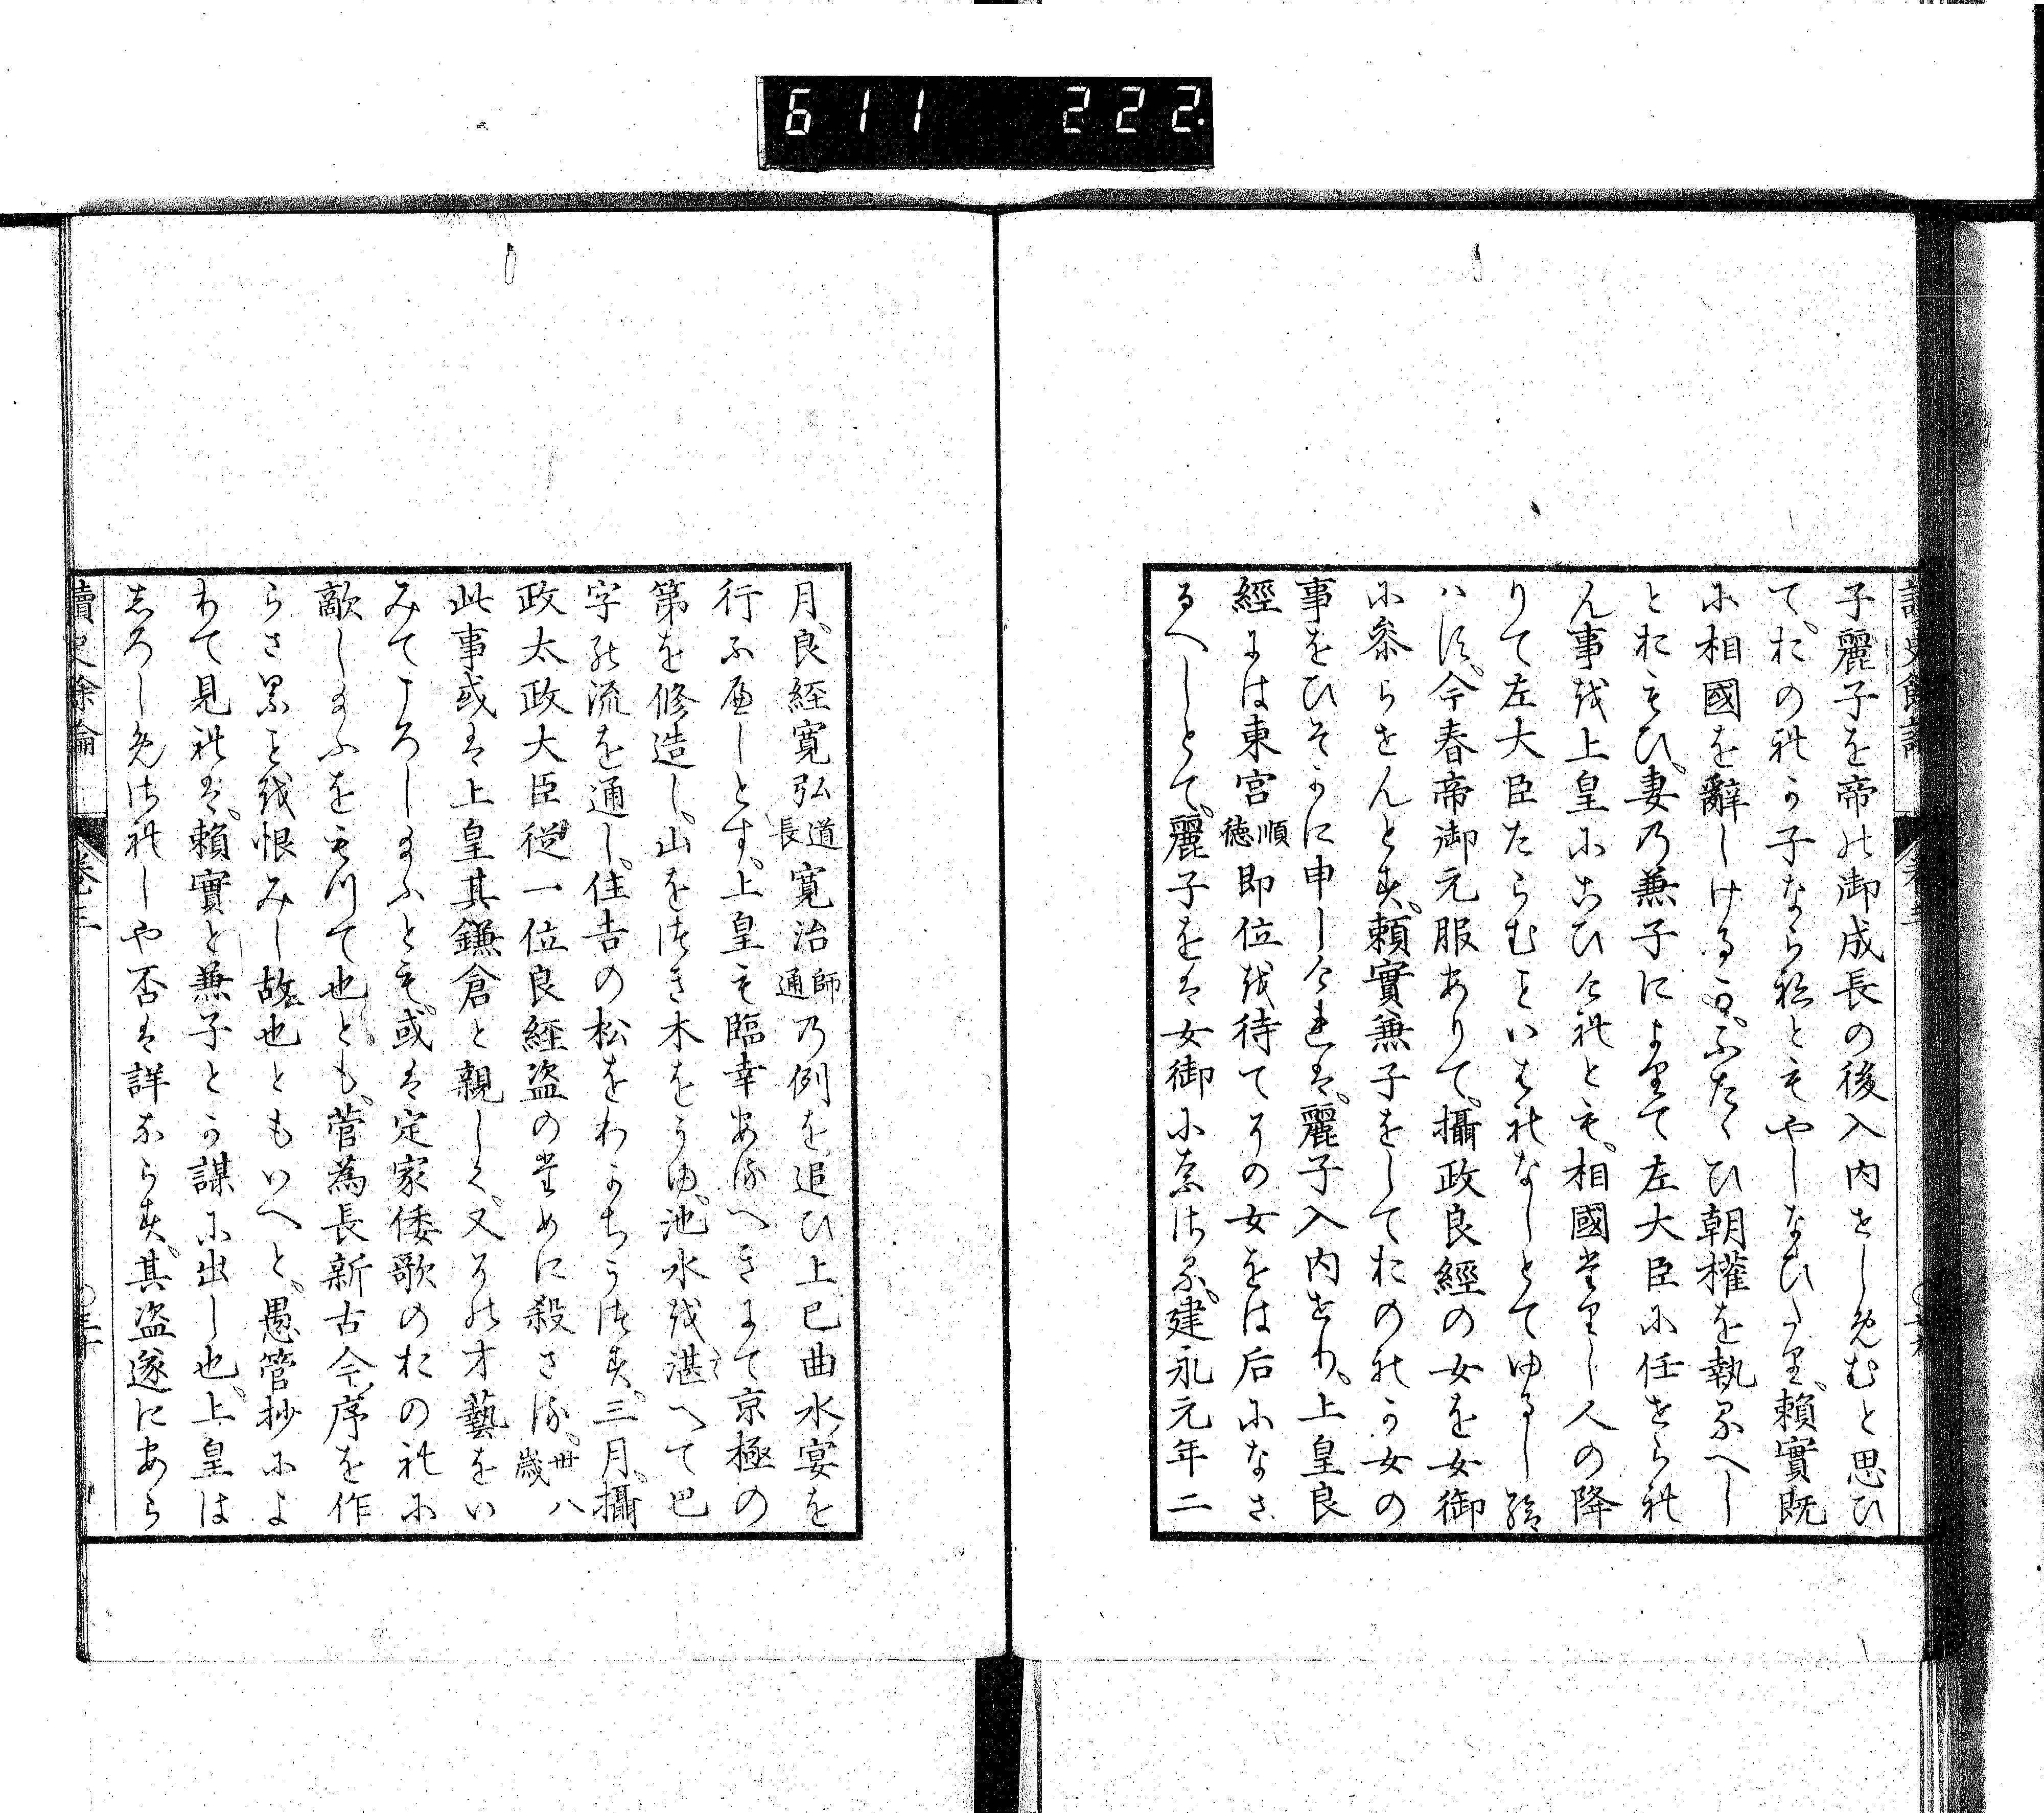 611 222.
子麗子を帝の御成長の後入内せしめむと思ひ
て、おのれか子ならねともやしなひたり。賴實既
に相國を辭しけるか、ふたゝひ朝權を執るへし
とおもひ、妻の兼子によりて左大臣に任せられ
ん事を上皇にこひけれとも、相國たりし人の降
りて左大臣たらむこといはれなしとてゆるし給
はす。今春帝御元服ありて、攝政良經の女を女御
に參らせんとす。賴實兼子をしておのれか女の
事をひそかに申しけれは、麗子入内せり。上皇良
經には東宮順德即位を待てその女をは后になさ
るへしとて、麗子をは女御になさる。建永元年二
月、良經寬弘道長寬治師通の例を追ひ上巳曲水宴を
行ふへしとす。上皇も臨幸あるへきまて京極の
第を修造し、山をつき木をうゆ。池水を湛へて巴
字の流を通し、住吉の松をわかちうつす。三月、攝
政太政大臣從一位良經盜のために殺さる。卅八歲
此事或は上皇其鎌倉と親しく、又その才藝をい
みてころしまふとも、或は定家倭歌のおのれに
敵しまふをもつて也とも、菅為長新古今序を作
らさることを恨みし故也ともいへと、愚管抄によ
りて見れは、賴實と兼子とか謀に出し也。上皇は
しろしめされしや否は詳ならす。其盜遂にあら
讀史餘論 卷三